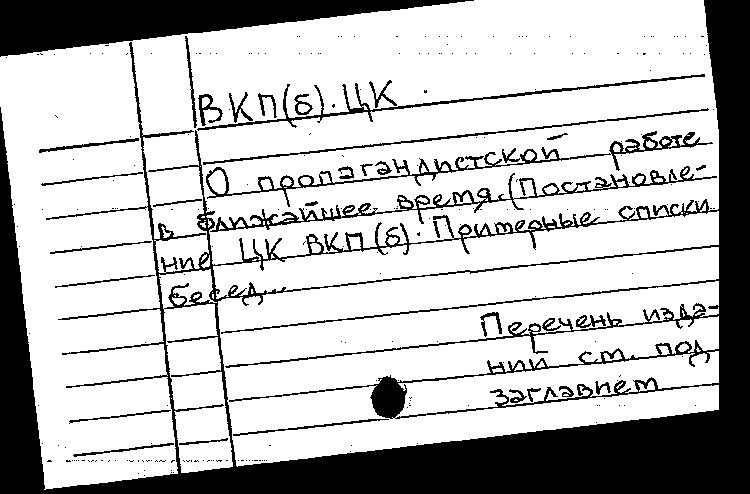 ВКП(б). ЦК.
О пропагандистской работе
в ближайшее время. (Постановле-
ние ЦК ВКП(б). Примерные списки
бесед...
Перечень изда-
ний см. под
заглавием